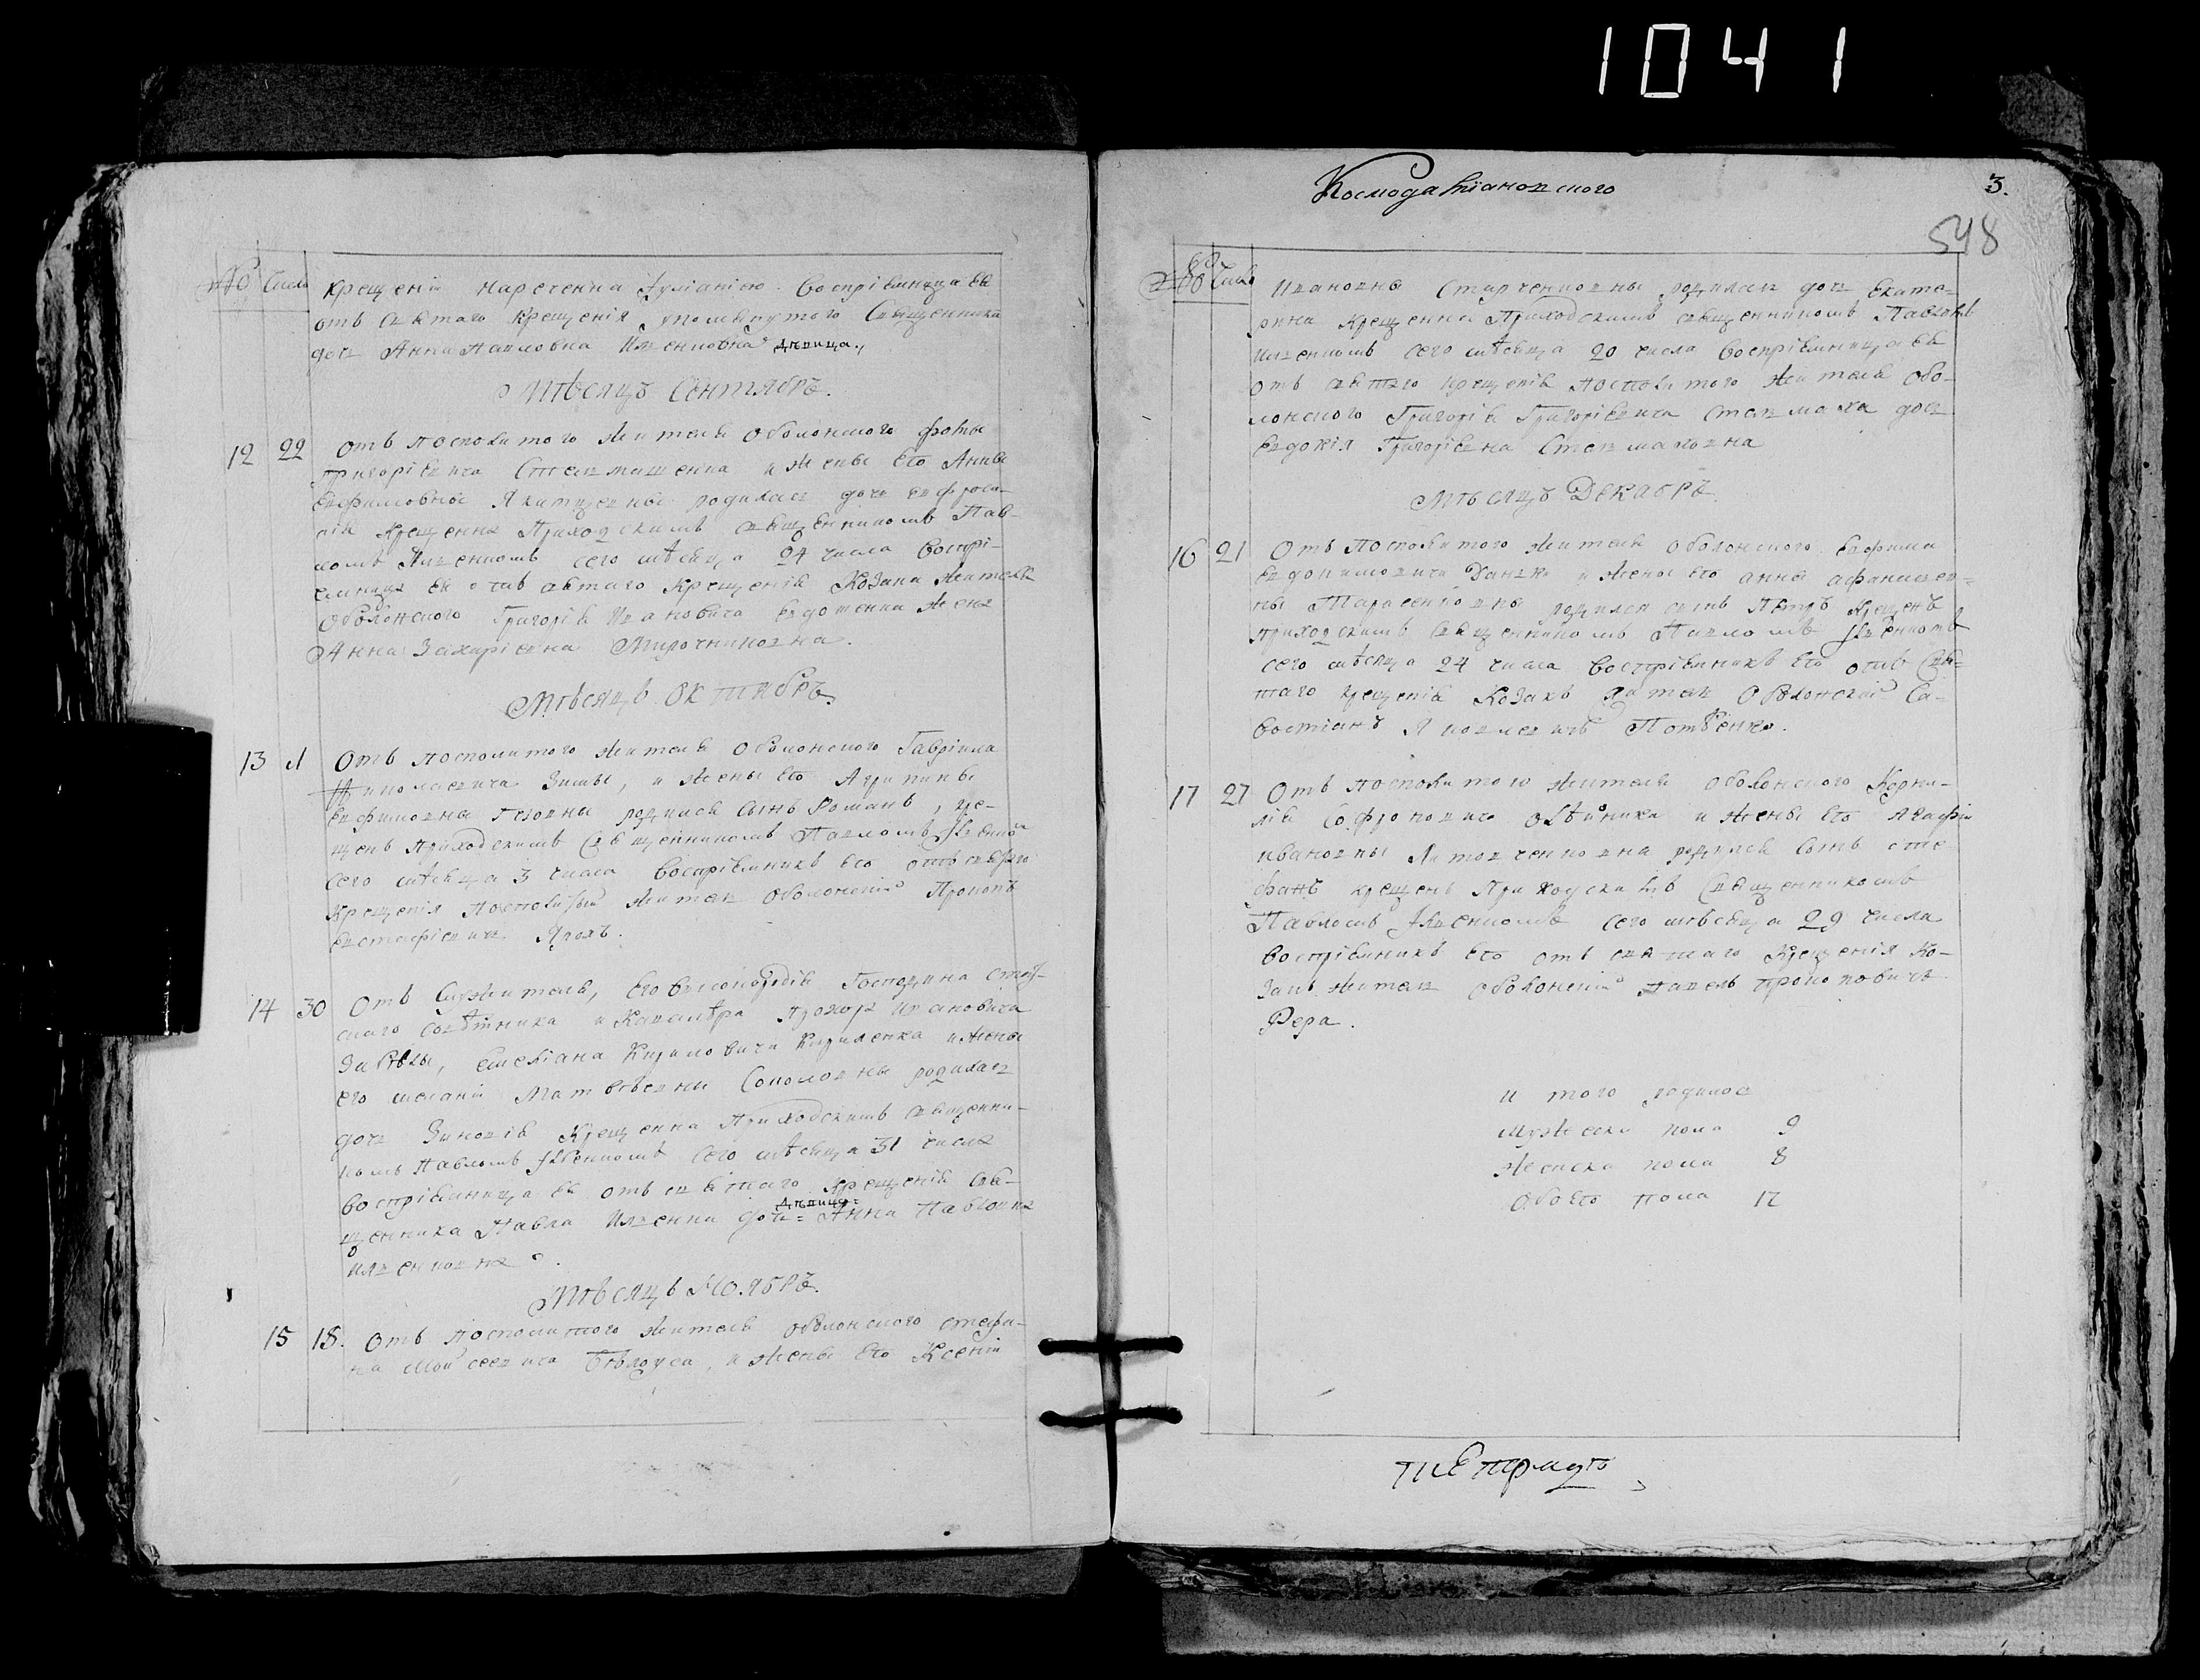 1041
№ Число
крещеніи нареченна Іуліаніею воспріемница ея
отъ святаго крещенія упомянутого священника
дочь Анна Павловна Ильенковна дѣвица.
Мѣсяцъ Сентябръ.
12 22 Отъ посполитого жителя оболонского Фомы
Григоріевича Стелмашенка и жены его Анны
Евфимовны родилась дочь Евфроси-
нія крещенна приходскимъ священникомъ Пав-
ломъ Ильенкомъ сего мѣсяца 24 числа воспрі-
емница ея отъ святаго крещенія козака жителя
оболонского Григорія Ивановича Евдотенка жена
Анна Захаріевна Мирочниковна.
Мѣсяцъ Октябръ
13 1 Отъ посполитого жителя оболонского Гавріила
Николаевича Зимы, и жены его Агрипины
Евфимовны родился сынъ Романъ, кре-
щенъ приходскимъ священникомъ Павломъ Ильенкомъ
сего мѣсяца 3 числа воспріемникъ его отъ святаго
крещенія посполитый житель оболонскій Прокопъ
Евстафіевичъ Ярохъ.
14 30 Отъ служителя, его високородія господина стат-
скаго совѣтника и кавалѣра Прохора Ивановича
Забѣлы, Емеліана Кириловича Кириленка и жены
его Меланіи Матвѣевны Соколовны родилась
дочь Зиновія крещенна приходскимъ священни-
комъ Павломъ Ильенкомъ сего мѣсяца 31 числа
воспріемница ея отъ святаго крещенія свя-
щенника Павла Ильенка дочь= дѣвица= Анна Павловна
Ильенковна.
Мѣсяцъ Ноябръ.
15 18. Отъ посполитого жителя оболонского Стефа-
на Мойсеевича Бѣлоуса, и жены его Ксеніи
Космодаміановского
3.
548
№ Число
Ивановны Старченковны родилась дочь Екате-
рина крещенна приходскимъ священникомъ Павломъ
Ильенкомъ сего мѣсяца 20 числа воспріемница ея
отъ святаго крещенія посполитого жителя обо-
лонского Григорія Григоріевича Стелмаха дочь
Евдокія Григоріевна Стелмаховна
Мѣсяцъ Декабръ
16 21 Отъ посполитого жителя оболонского Евфима
Евдокимовича и жены его Анны Афанасіев-
ны Тарасенковны родился сынъ Петръ крещенъ
приходскимъ священникомъ Павломъ Ильенкомъ
сего мѣсяца 24 числа воспріемникъ его отъ свя-
таго крещенія козакъ житель оболонскій Са-
востіанъ Яковлевичъ
17 27 Отъ посполитого жителя оболонского Корни-
лія Софроновича Олѣйника и жены его Агафіи
Ивановны родился сынъ Сте-
фанъ крещенъ приходскимъ священникомъ
Павломъ Ильенкомъ сего мѣсяца 29 числа
воспріемникъ его отъ святаго крещенія ко-
закъ житель оболонскій Павелъ Прокоповичъ
Рера.
и того родилось
мужеска пола 9
женска пола 8
обоего пола 17